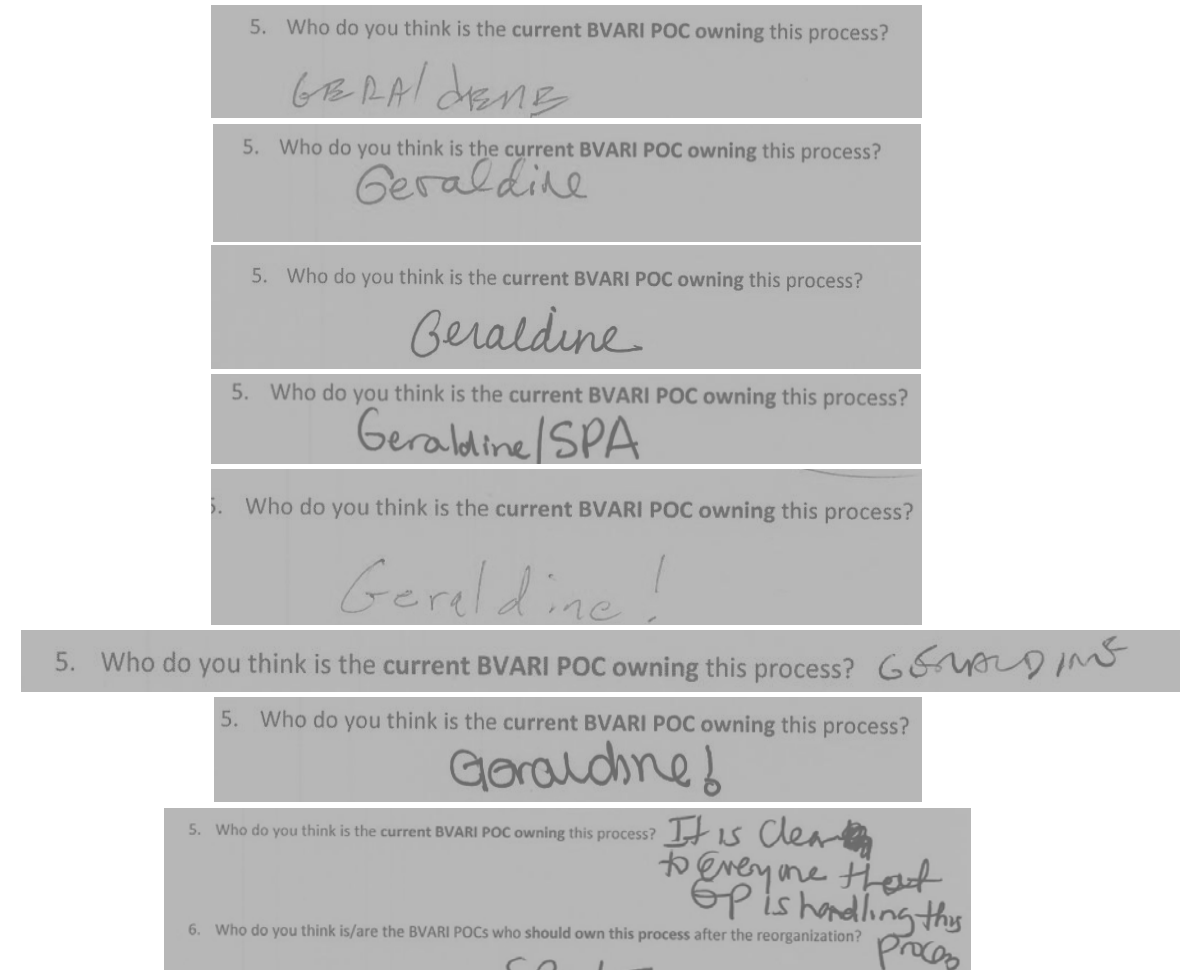 5. Who do you think is the current BVARI POC owning this process?
GERAldENE
5. Who do you think is the current BVARI POC owning this process?
Geraldine
5. Who do you think is the current BVARI POC owning this process?
Geraldine
5. Who do you think is the current BVARI POC owning this process?
Geraldine/SPA
5. Who do you think is the current BVARI POC owning this process?
Geraldine!
5. Who do you think is the current BVARI POC owning this process? GERALDINE
5. Who do you think is the current BVARI POC owning this process?
Geraldine!
5. Who do you think is the current BVARI POC owning this process? It is clear
to everyone that
GP is handling this
process
6. Who do you think is/are the BVARI POCs who should own this process after the reorganization?